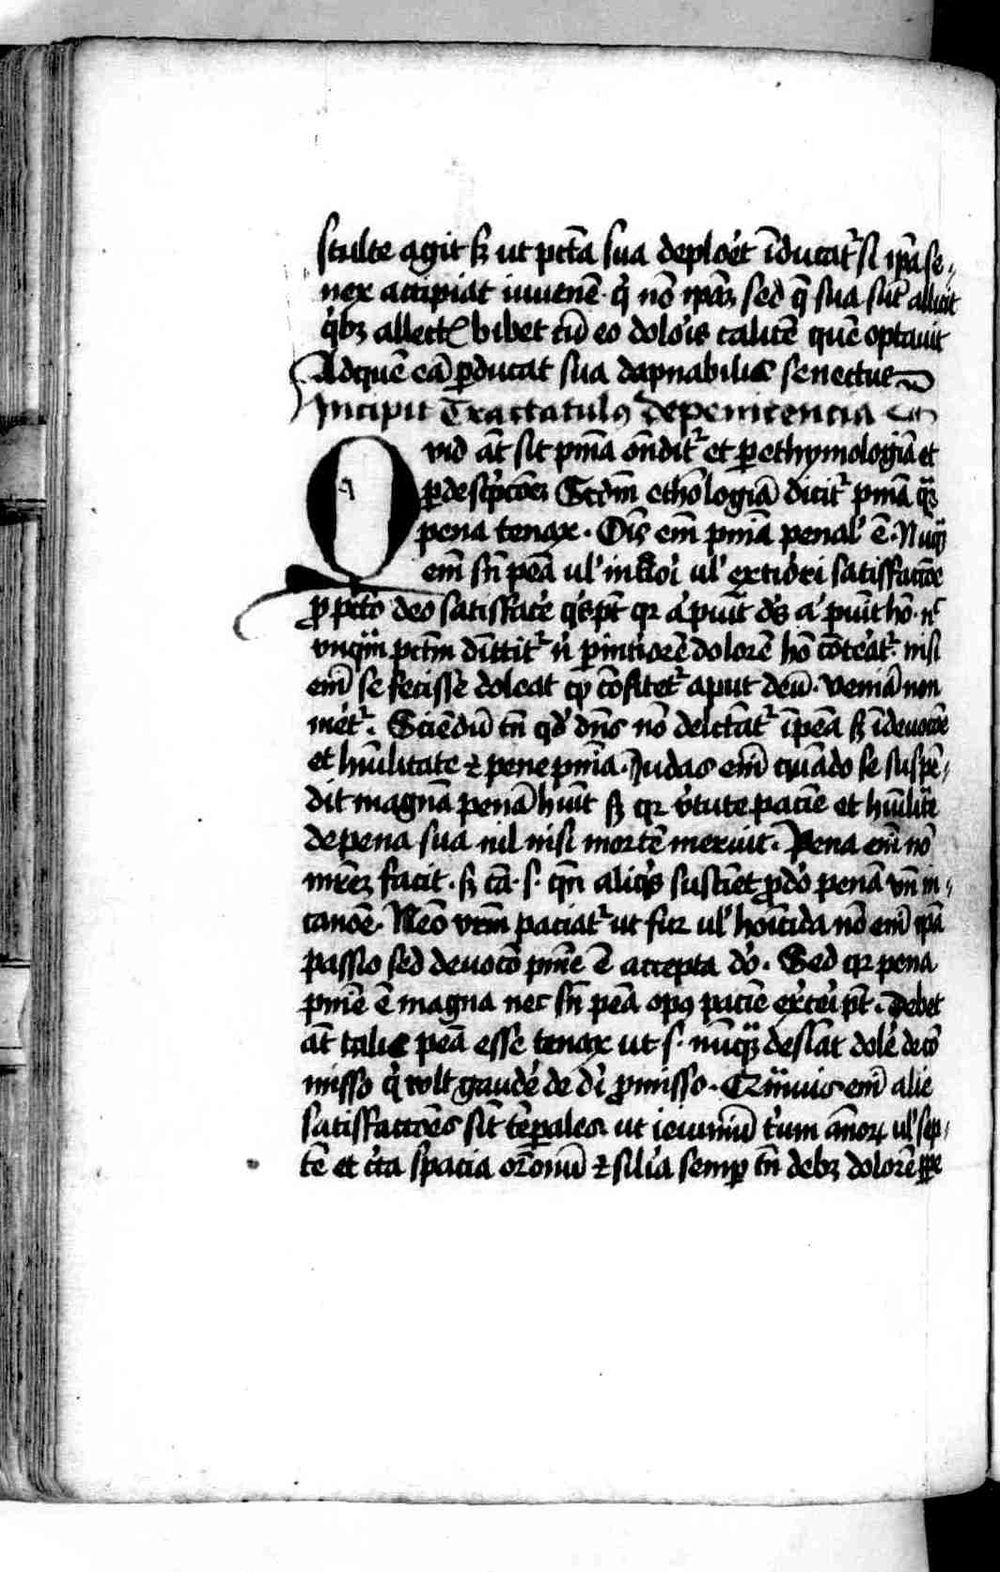 stulte agit sꝫ ut pctā sua deploret īducatʳ si ipā se-
nex accipiat iuuenē · qͥ nō ipāꝫ sed q̄ sua sūt allicit
qͥbꝫ allectꝰ bibet cū eo doloris calicē quē optauit
Ad quē eā ꝑducat sua dapnabilis senectus
Incipit Tractatulꝰ de penitencia
Quid āt sit pnīa ōnditʳ et ꝑ ethymologiā et
ꝑ descͥpcōeꝫ Scdm ethōlogiā dicitʳ pnīa qͣsi
pena tenax · Oīs em̄ pnīa penal' ē · Nūqͣꝫ
em̄ sn̄ peā ul' in̄iori ul' exteriori satisffaccōe
ꝓ pctō deo satisffacē qͥs pt̄ qr a' puīt dꝰs a' puīt hō · nͨ
vnqͣm pctm̄ dīttitʳ nͥ ꝑ intiorē dolorē hō cōteratʳ · nisi
em̄ se fecisse doleat qͥ cōfitetʳ aput deū · veniā non
meretʳ · Sciendū tn̄ qd' dn̄s nō delctātʳ ī peā sꝫ ī deuocōe
et hūilitate ⁊ pene pnīa · Judas em̄ quādo se suspē-
dit magnā penā huīt sꝫ qr v'tute pacīe et hūilitͣte
de pena sua nil nisi mortē meruit · Pena em̄ nō
mr̄eꝫ facit · sꝫ cā · s · qn̄ aliqͥs sustīet ꝓ dō penā vn̄ in-
canōe · Nēo vrm̄ paciatʳ ut fur ul' homīcida nō em̄ ipā
passio sed deuocō pnīe ē accepta dō · Sed qr pena
pnīe ē magna nec sn̄ peā opꝰ pacīe ex'ceri pt̄ · Debet
āt talis peā esse tenax ut s · nūqͣꝫ desīat dolē de cō-
misso qͥ volt gaudē de di ꝓmisso · Qͣmuis em̄ alie
satisffaccōes sīt tēꝑales · ut ieiuniū trium ānoꝝ ul' sep-
tē et cͥta spacia orōnū ⁊ silīa semꝑ tn̄ debꝫ dolorē ꝑpe